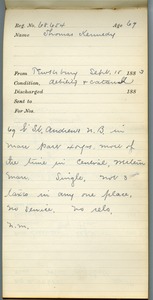 Reg. No. 68.654 Age 69
Name Thomas Kennedy
From Tewksbury Sept. 15 188
Condition, debility & cataract
Discharged 188
Sent to
For No.
69 S. St. Andrews N.B. in
more part 40 yrs. more of
the time in Central,
mass. Single, not 3
in any one place,
no service. no rels.
n.m.